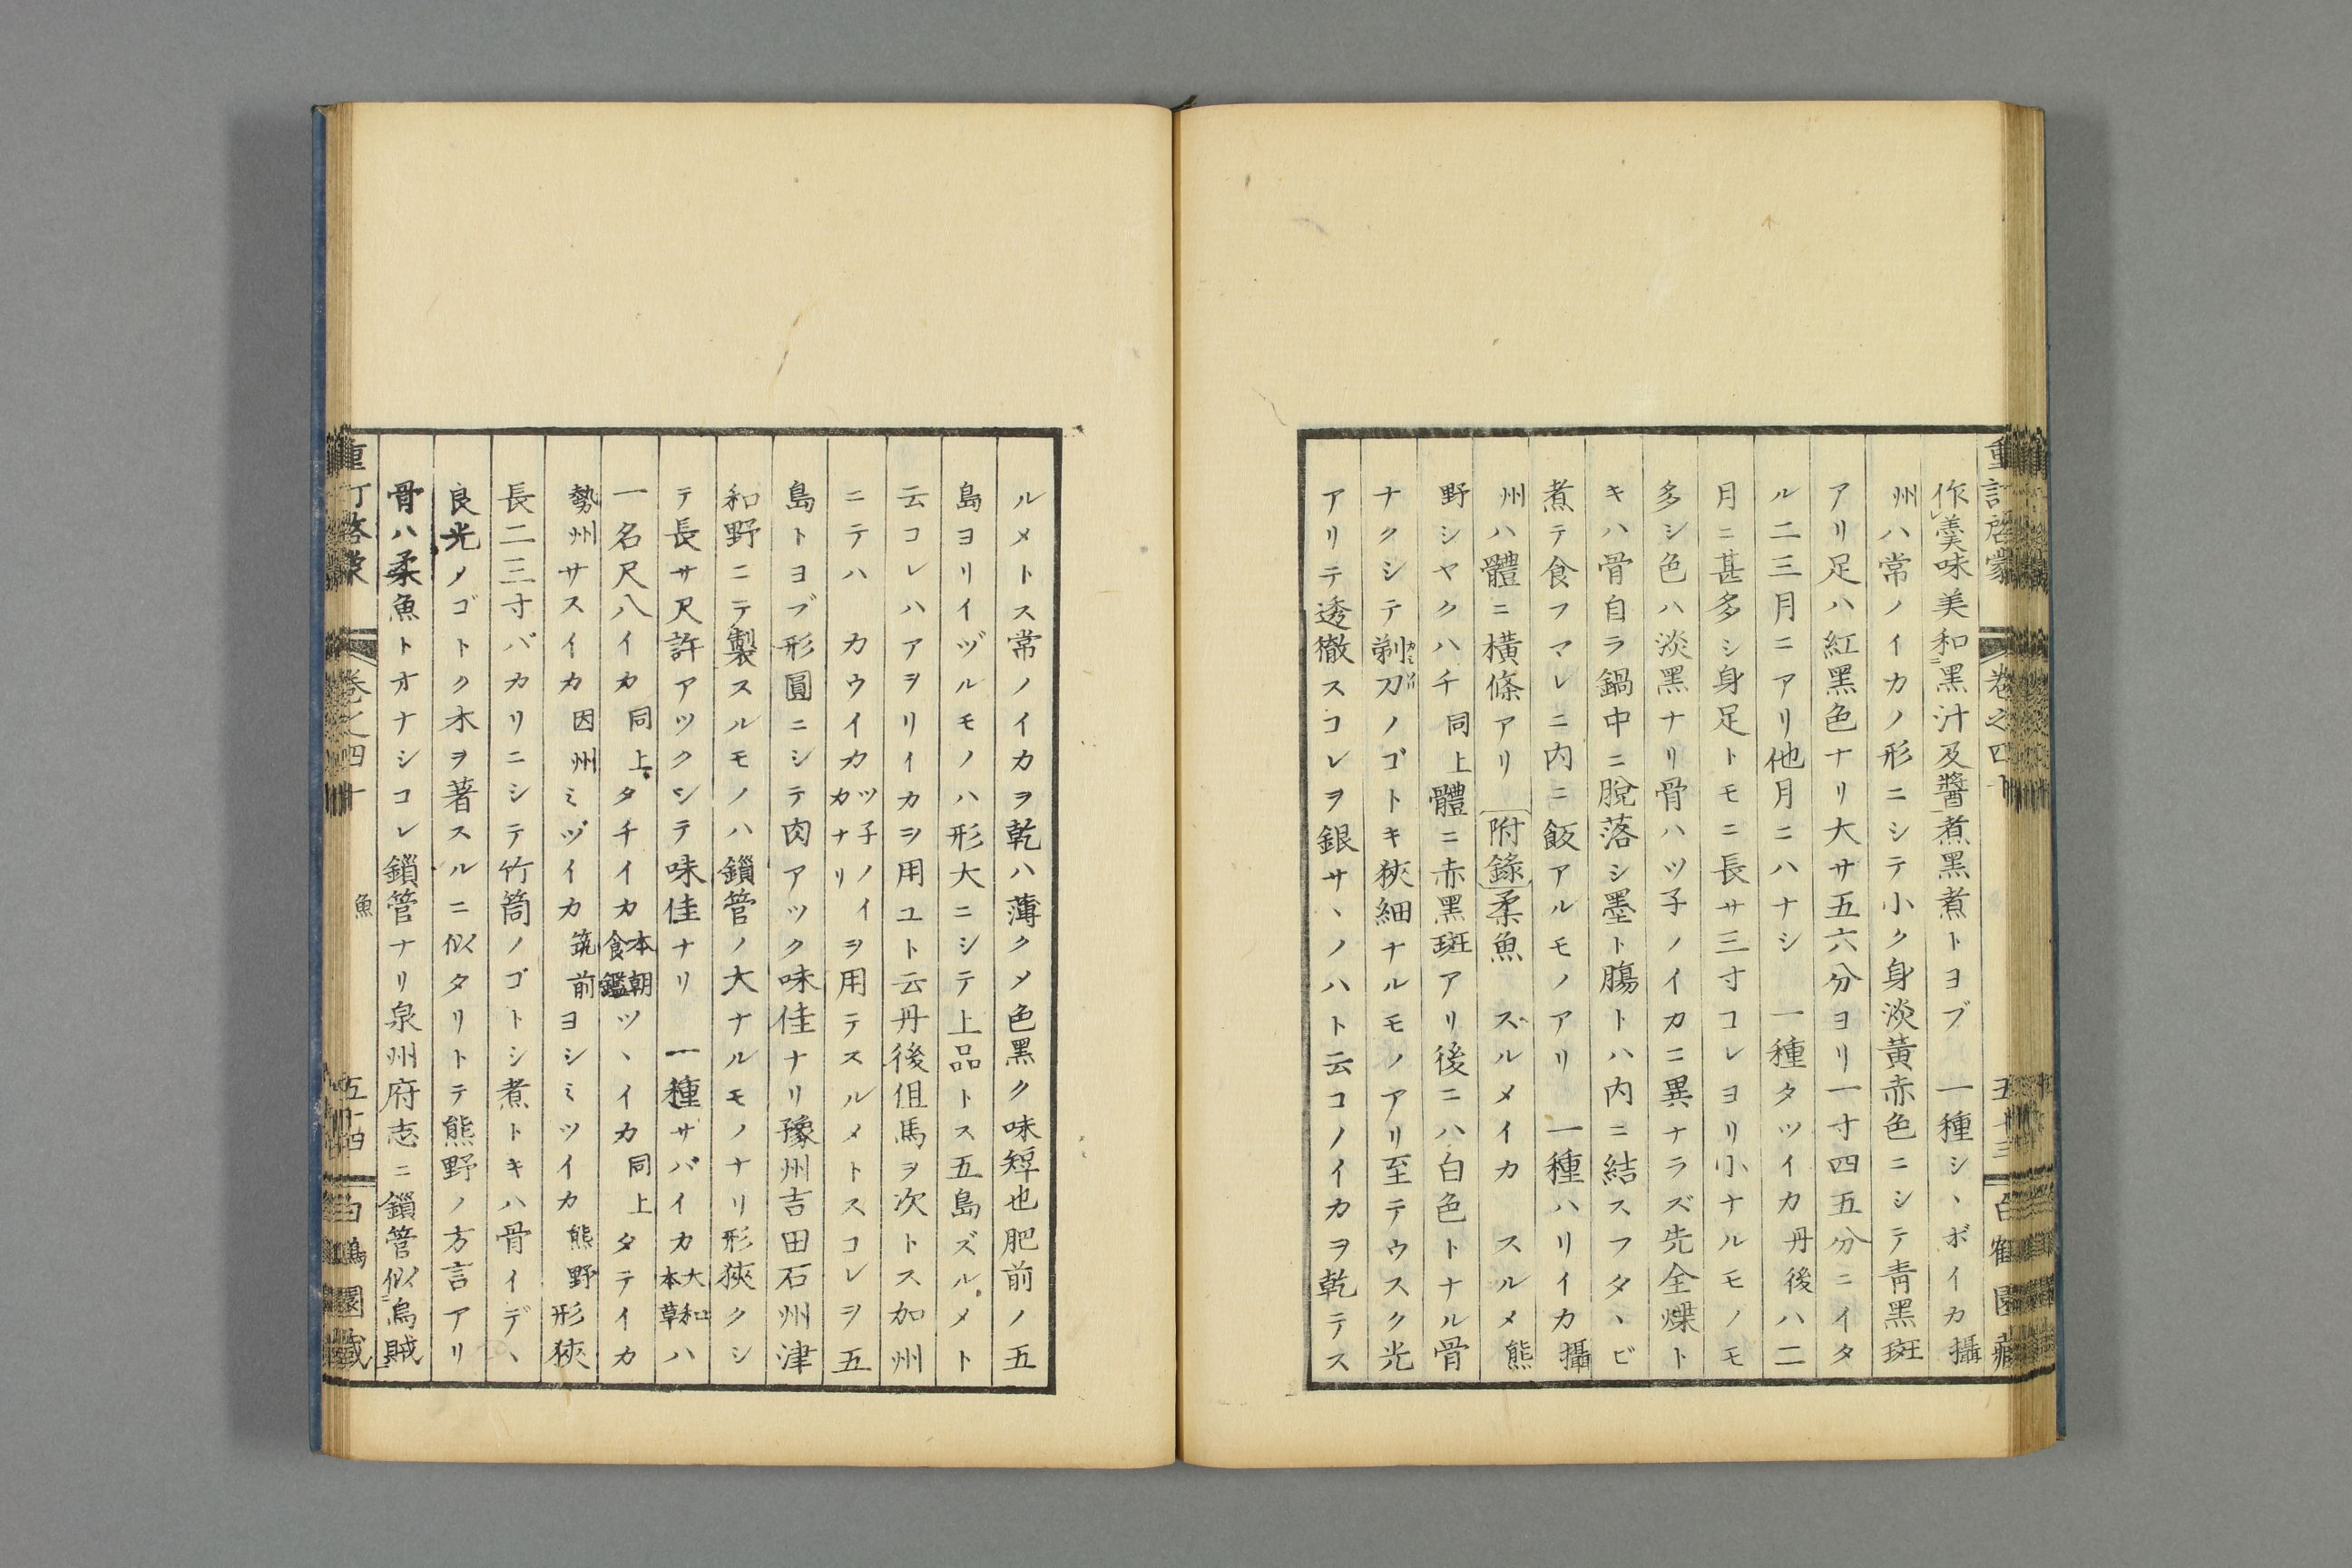 重訂啓蒙 卷之四十 五十三 白鶴園藏
作レ羹味美和ニ黑汁及醬一煮黑煮トヨブ 一種シヽボイカ攝
州ハ常ノイカノ形ニシテ小ク身淡黃赤色ニシテ青黑斑
アリ足ハ紅黑色ナリ大サ五六分ヨリ一寸四五分ニイタ
ル二三月ニアリ他月ニハナシ 一種タツイカ丹後ハ二
月ニ甚多シ身足トモニ長サ三寸コレヨリ小ナルモノモ
多シ色ハ淡黑ナリ骨ハツ子ノイカニ異ナラズ先全煠ト
キハ骨自ラ鍋中ニ脫落シ墨ト膓トハ内ニ結スフタヽビ
煮テ食フマレニ内ニ飯アルモノアリ 一種ハリイカ攝
州ハ體ニ橫條アリ 附錄 柔魚 スルメイカ スルメ熊
野シヤクハチ同上體ニ赤黑斑アリ後ニハ白色トナル骨
ナクシテ剃刀ノゴトキ狹細ナルモノアリ至テウスク光
アリテ透徹スコレヲ銀サヽノハト云コノイカヲ乾テス
ルメトス常ノイカヲ乾ハ薄クメ色黑ク味短也肥前ノ五
島ヨリイヅルモノハ形大ニシテ上品トス五島ズルメト
云コレハアヲリイカヲ用ユト云丹後伹馬ヲ次トス加州
ニテハ カウイカ ツ子ノイカナリ ヲ用テスルメトスコレヲ五
島トヨブ形圓ニシテ肉アツク味佳ナリ豫州吉田石州津
和野ニテ製スルモノハ鎖管ノ大ナルモノナリ形狹クシ
テ長サ尺許アツクシテ味佳ナリ 一種サバイカ大和本草ハ
一名尺八イカ同上タチイカ本朝食鑑ツヽイカ同上タテイカ
勢州サスイカ因州ミヅイカ筑前ヨシミツイカ熊野形狹
長二三寸バカリニシテ竹筒ノゴトシ煮トキハ骨イデヽ
良光ノゴトク木ヲ著スルニ似タリトテ熊野ノ方言アリ
骨ハ柔魚トオナシコレ鎖管ナリ泉州府志ニ鎖管似ニ烏賊一
重訂啓蒙 卷之四十 魚 五十四 白鶴園藏